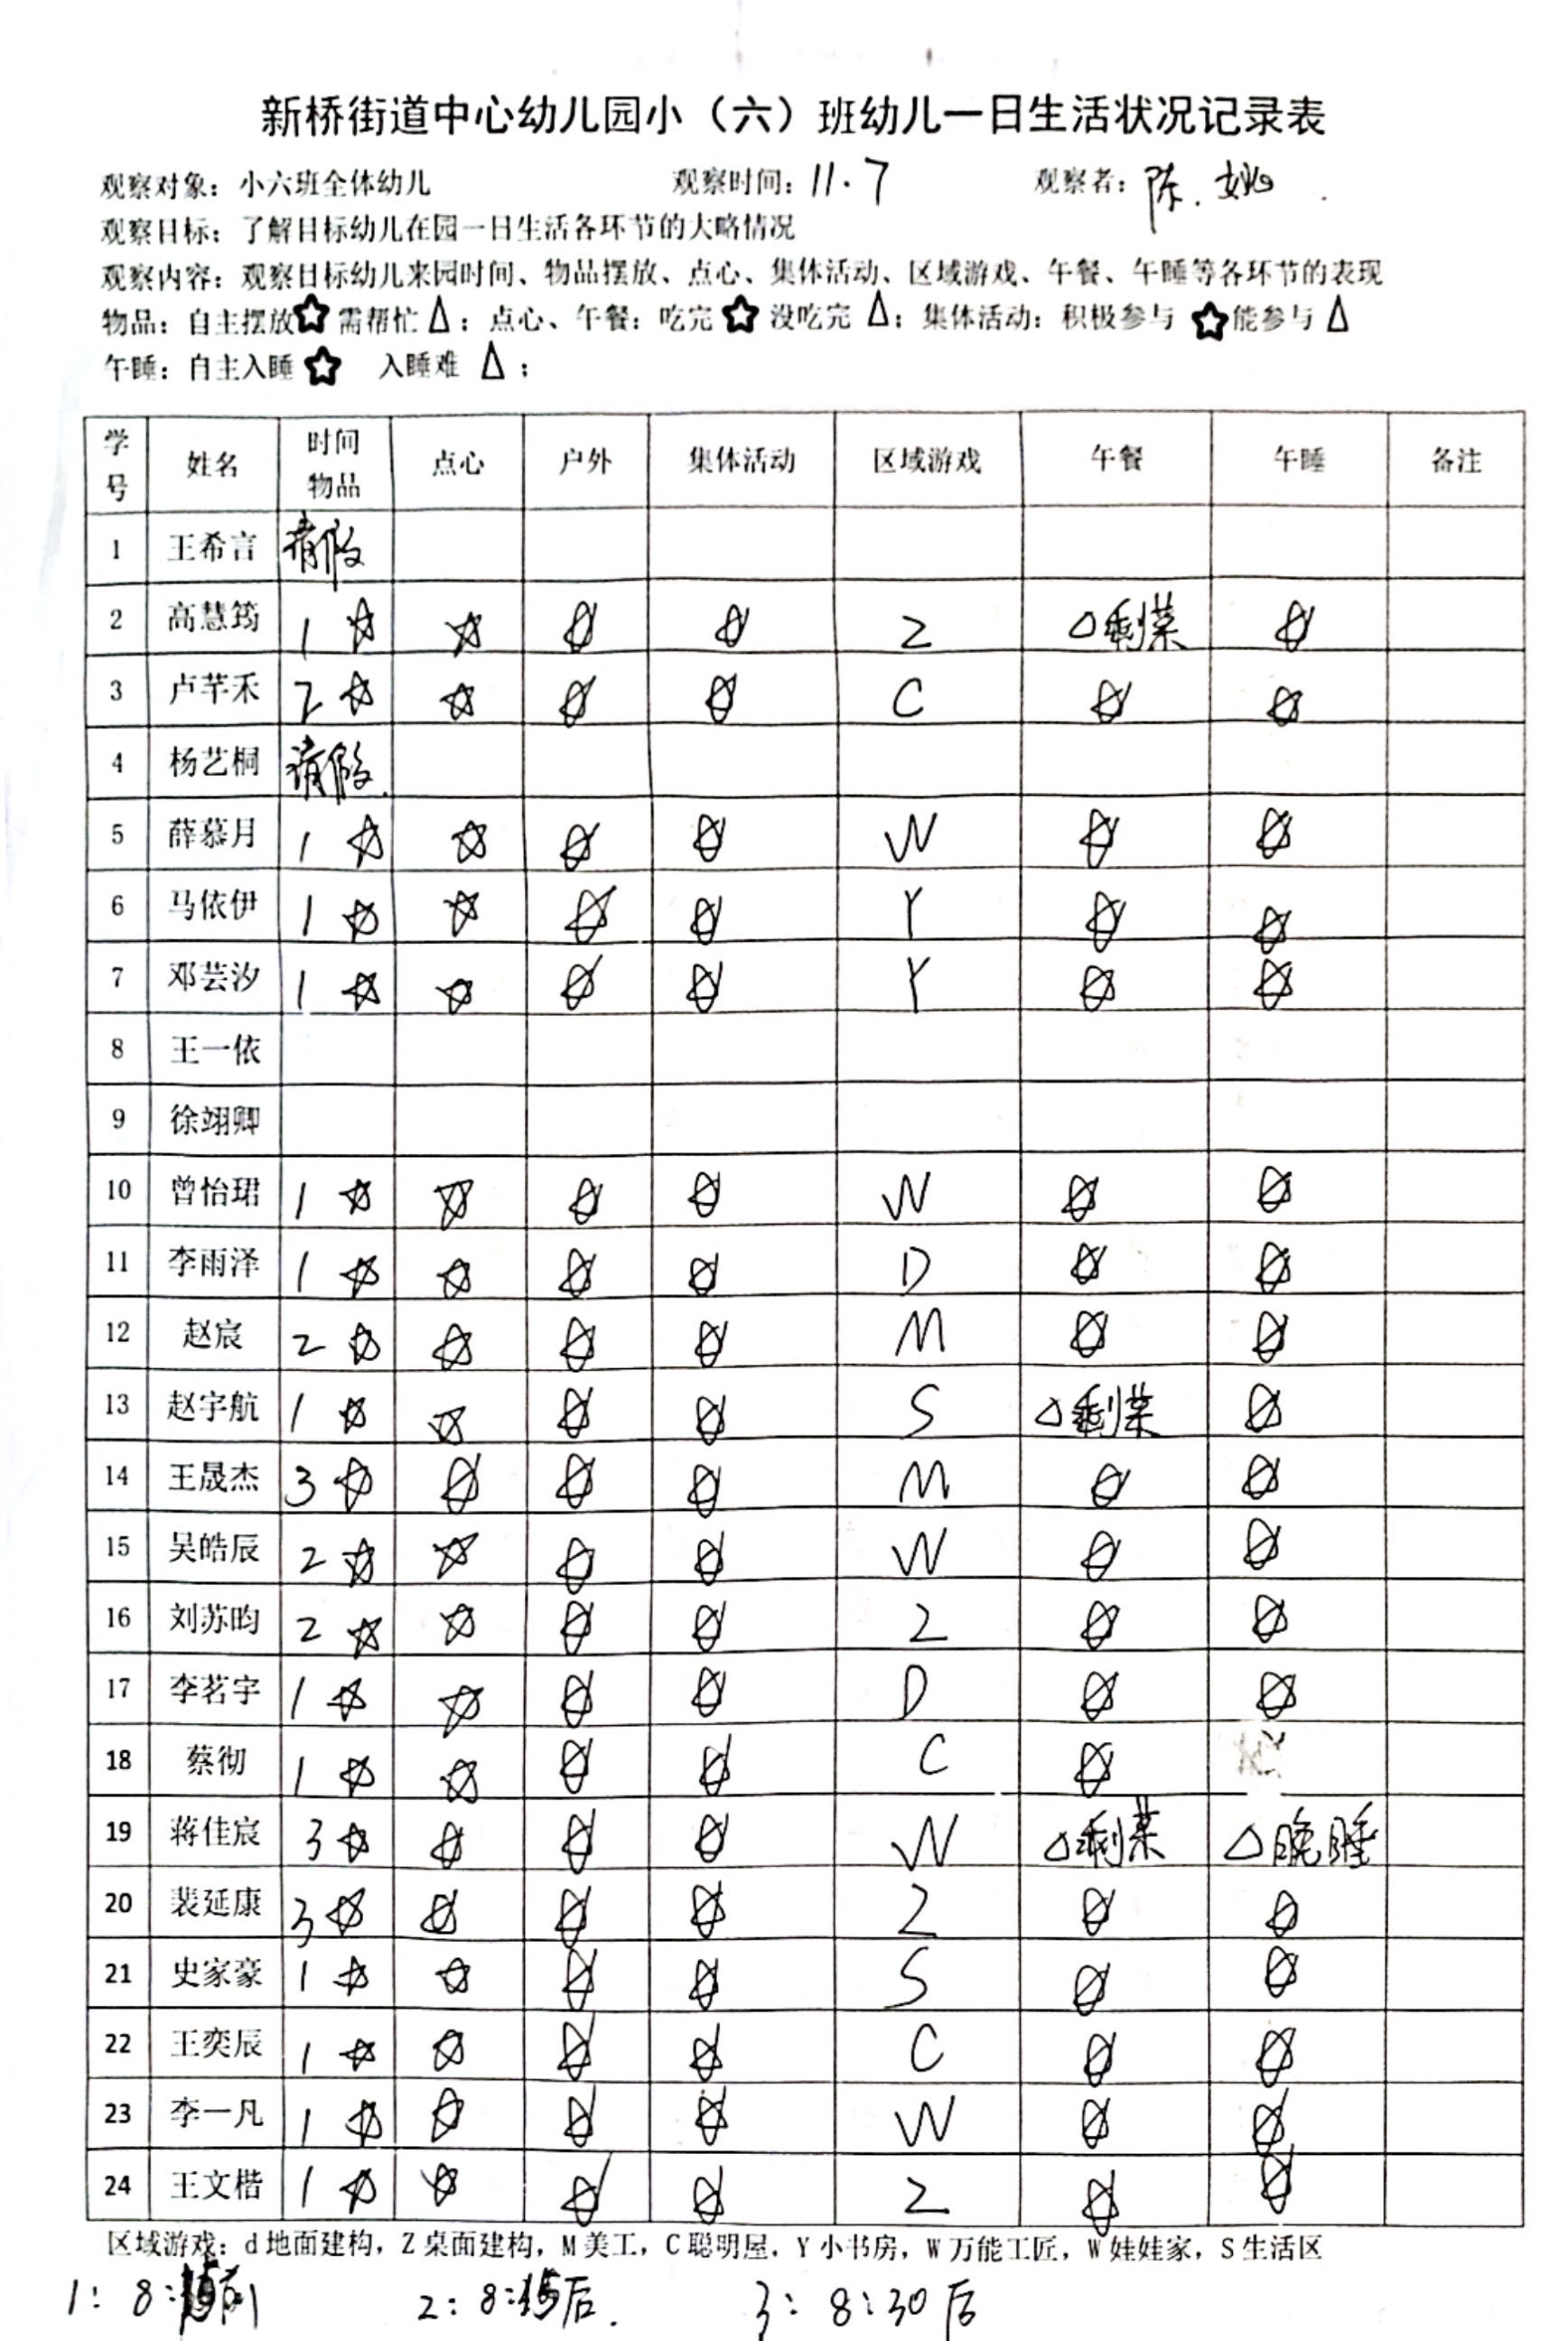 新桥街道中心幼儿园小（六）班幼儿一日生活状况记录表
观察对象：小六班全体幼儿 观察时间：11.7 观察者：陈.姚
观察目标：了解目标幼儿在园一日生活各环节的大略情况
观察内容：观察目标幼儿来园时间、物品摆放、点心、集体活动、区域游戏、午餐、午睡等各环节的表现
物品：自主摆放☆需帮忙△；点心、午餐：吃完☆没吃完△；集体活动：积极参与☆能参与△
午睡：自主入睡☆ 入睡难△；
学号 姓名 时间物品 点心 户外 集体活动 区域游戏 午餐 午睡 备注
1 王希言 请假
2 高慧筠 1 ☆ ☆ ☆ ☆ Z △剩菜 ☆
3 卢芊禾 2 ☆ ☆ ☆ ☆ C ☆ ☆
4 杨艺桐 请假.
5 薛慕月 1 ☆ ☆ ☆ ☆ W ☆ ☆
6 马依伊 1 ☆ ☆ ☆ ☆ Y ☆ ☆
7 邓芸汐 1 ☆ ☆ ☆ ☆ Y ☆ ☆
8 王一依
9 徐翊卿
10 曾怡珺 1 ☆ ☆ ☆ ☆ W ☆ ☆
11 李雨泽 1 ☆ ☆ ☆ ☆ D ☆ ☆
12 赵宸 2 ☆ ☆ ☆ ☆ M ☆ ☆
13 赵宇航 1 ☆ ☆ ☆ ☆ S △剩菜 ☆
14 王晟杰 3 ☆ ☆ ☆ ☆ M ☆ ☆
15 吴皓辰 2 ☆ ☆ ☆ ☆ W ☆ ☆
16 刘苏昀 2 ☆ ☆ ☆ ☆ Z ☆ ☆
17 李茗宇 1 ☆ ☆ ☆ ☆ D ☆ ☆
18 蔡彻 1 ☆ ☆ ☆ ☆ C ☆
19 蒋佳宸 3 ☆ ☆ ☆ ☆ W △剩菜 △晚睡
20 裴延康 3 ☆ ☆ ☆ ☆ Z ☆ ☆
21 史家豪 1 ☆ ☆ ☆ ☆ S ☆ ☆
22 王奕辰 1 ☆ ☆ ☆ ☆ C ☆ ☆
23 李一凡 1 ☆ ☆ ☆ ☆ W ☆ ☆
24 王文楷 1 ☆ ☆ ☆ ☆ Z ☆ ☆
区域游戏：d 地面建构，Z 桌面建构，M 美工，C 聪明屋，Y 小书房，W 万能工匠，W 娃娃家，S 生活区
1：8:15前 2：8:15后. 3：8:30后